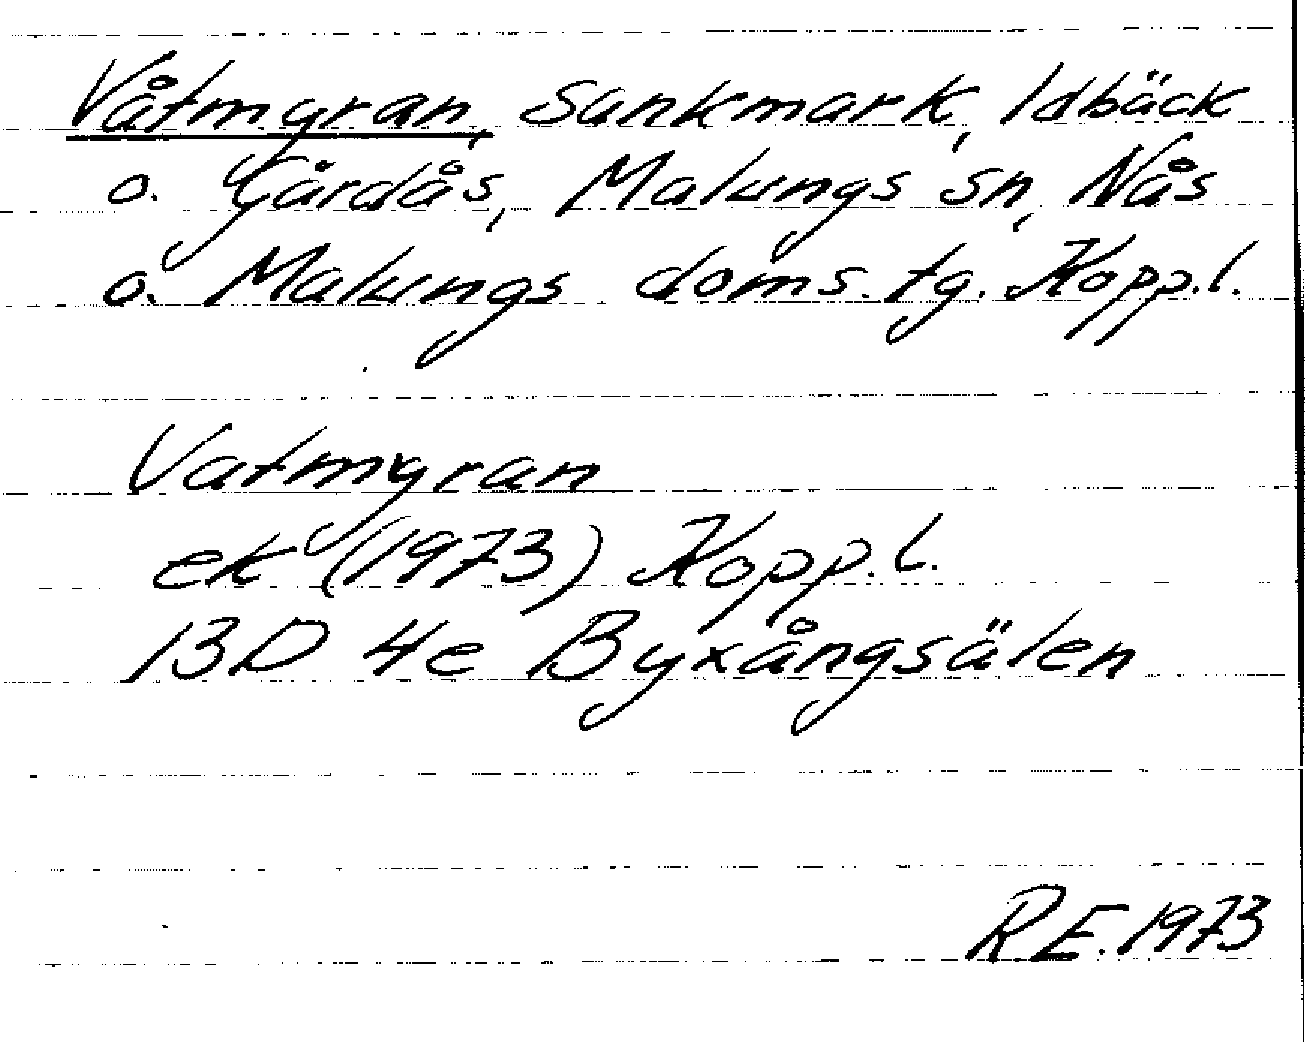 Våtmyran, Sankmark, Idbäck
o. Gårdås, Malungs sn, Nås
o. Malungs doms. tg. Kopp.l.
Vatmyran
ek (1973) Kopp.l.
13D 4e Byxångsälen
R E. 1973